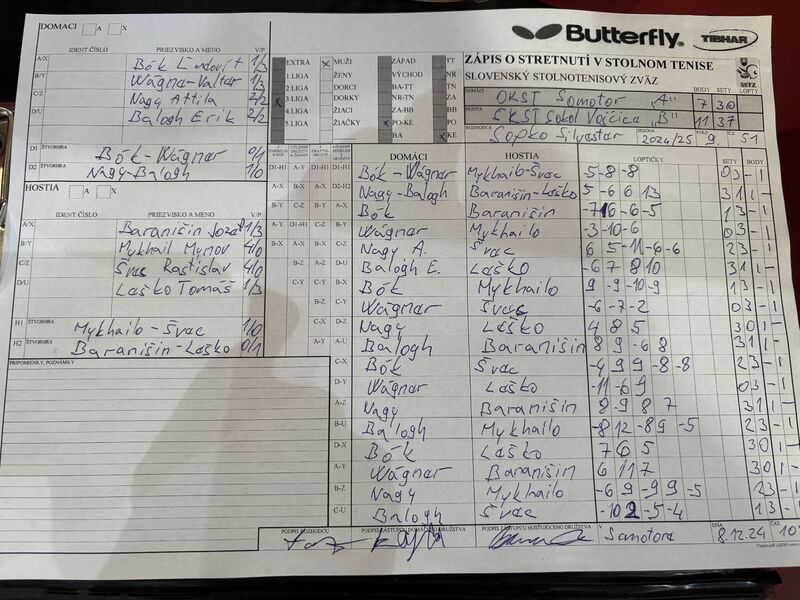 DOMACI A X
IDENT.ČÍSLO PRIEZVISKO A MENO V/P
A/X Bók Ľudovít 1/3
B/Y Wágner Valter 1/3
C/Z Nagy Attila 2/2
D/U Balogh Erik 2/2
D1 ŠTVORHRA Bók-Wágnar 0/1
D2 Nagy-Balogh 1/0
HOSTIA A X
IDENT.ČÍSLO PRIEZVISKO A MENO V/P
A/X Baranišin Jozef 1/3
B/Y Mykhail Mynov 4/0
C/Z Švac Rastislav 4/0
D/U Laško Tomáš 1/3
H1 ŠTVORHRA Mykhailo-Švac 1/0
H2 ŠTVORHRA Baranišin-Laško 0/1
PRIPOMIENKY, POZNÁMKY
Butterfly TIBHAR
EXTRA x MUŽI ZÁPAD TT
1.LIGA ŽENY VÝCHOD NR
2.LIGA DORCI BA-TT TN
x 3.LIGA DORKY NR-TN ZA
4.LIGA ŽIACI ZA-BB BB
5.LIGA ŽIAČKY x PO-KE PO
BA x KE
ZÁPIS O STRETNUTÍ V STOLNOM TENISE
SLOVENSKÝ STOLNOTENISOVÝ ZVÄZ
SSTZ
BODY SETY LOPTY
DOMÁCI OKST Somotor "A" 7 30
HOSTIA EKST Sokol Vojčica "B" 11 37
ROZHODCA Sopko Silvester SEZÓNA 2024/25 KOLO 9. Č.Z. 51
DOMÁCI HOSTIA LOPTIČKY SETY BODY
D1-H1 Bók-Wágnar Mykhailo-Švac -5 -8 -8 03 -1
D2-H2 Nagy-Balogh Baranišin-Laško 5 -6 6 13 31 1-
A-X Bók Baranišin -7 16 -6 -5 13 -1
B-Y Wágnar Mykhailo -3 -10 -6 03 -1
C-Z Nagy A. Švac 6 5 -11 -6 -6 23 -1
D-U Balogh E. Laško -6 7 8 10 31 1-
Bók Mykhailo 9 -9 -10 -9 13 -1
Wágnar Švac -6 -7 -2 03 -1
D-Z Nagy Laško 4 8 5 30 1-
A-U Balogh Baranišin 8 9 -6 8 31 1-
C-X Bók Švac -4 9 9 -8 -8 23 -1
D-Y Wágnar Laško -11 -6 -9 03 -1
A-Z Nagy Baranišin 8 -9 8 7 31 1-
B-U Balogh Mykhailo -8 12 -8 9 -5 23 -1
D-X Bók Laško 7 6 5 30 1-
A-Y Wágnar Baranišin 6 11 7 30 1-
B-Z Nagy Mykhailo -6 9 -9 9 -5 23 -1
C-U Balogh Švac -10 2 -5 -4 13 -1
PODPIS ROZHODCU PODPIS ZÁSTUPCU DOMÁCEHO DRUŽSTVA PODPIS ZÁSTUPCU HOSŤUJÚCEHO DRUŽSTVA V Somotore DŇA 8.12.24 ČAS 10